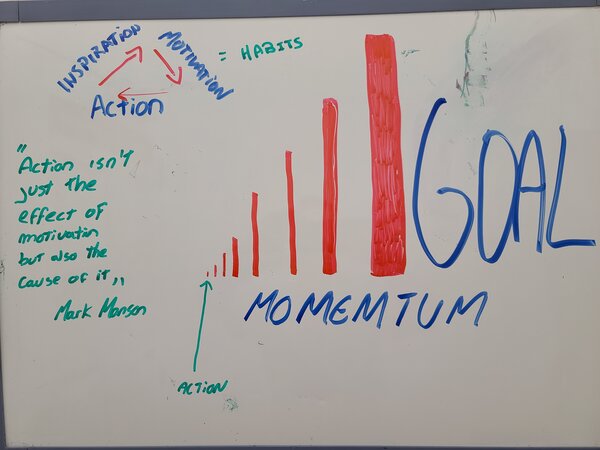 INSPIRATION
MOTIVATION
Action
= HABITS
"Action isn't
just the
effect of
motivatin
but also the
cause of it,,
Mark Manson
GOAL
MOMEMTUM
ACTION